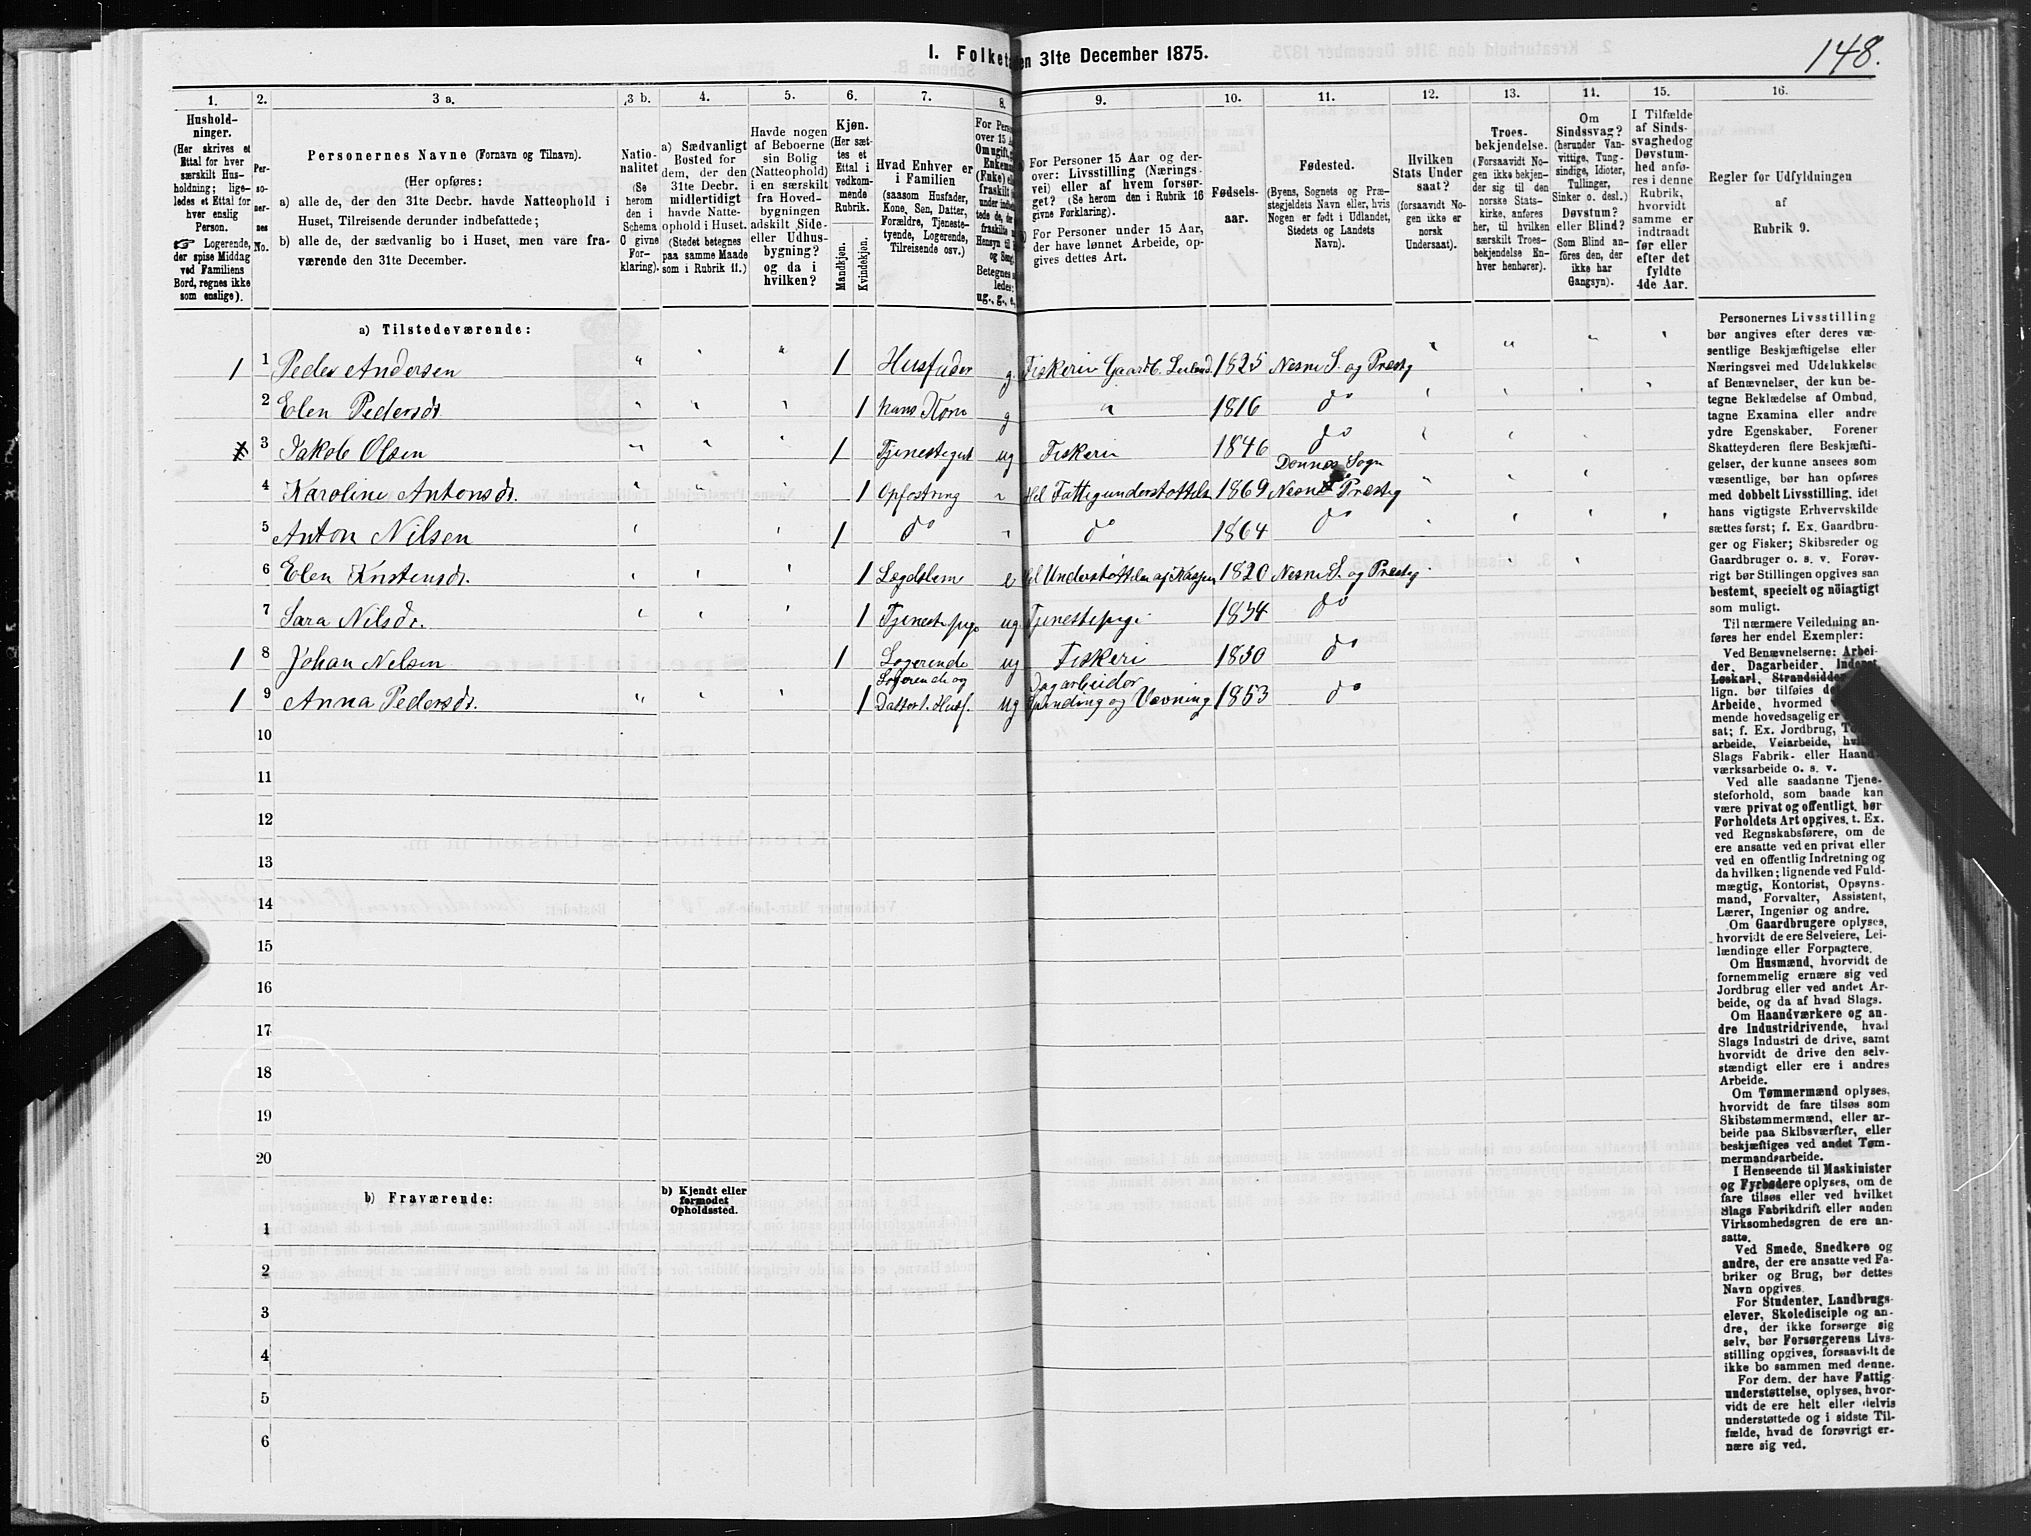 148.
I. Folketa en 31te December 1875.
1. 2. 3 a. 3 b. 4. 5. 6. 7. 8. 9. 10. 11. 12. 13. 14. 15. 16.
Hushold-
ninger.
(Her skrives et
Ettal for hver
særskilt Hus-
holdning; lige-
ledes et Ettal for
hver enslig
Person.
☞ Logerende,
der spise Middag
ved Familiens
Bord, regnes ikke
som enslige).
Per-
so-
ner-
nes
No.
Personernes Navne (Fornavn og Tilnavn).
(Her opføres:
a) alle de, der den 31te Decbr. havde Natteophold i
Huset, Tilreisende derunder indbefattede;
b) alle de, der sædvanlig bo i Huset, men vare fra-
værende den 31te December.
Natio-
nalitet
(Se
herom
den i
Schema
C givne
For-
klaring).
a) Sædvanligt
Bosted for
dem, der den
31te Decbr.
midlertidigt
havde Natte-
ophold i Huset.
(Stedet betegnes
paa samme Maade
som i Rubrik 11.)
Havde nogen
af Beboerne
sin Bolig
(Natteophold)
i en særskilt
fra Hoved-
bygningen
adskilt Side-
eller Udhus-
bygning?
og da i
hvilken?
Kjøn.
(Her sæt-
tes et
Ettal i
vedkom-
mende
Rubrik.
Mandkjøn.
Kvindekjøn.
Hvad Enhver er
i Familien
(saasom Husfader,
Kone, Søn, Datter,
Forældre, Tjeneste-
tyende, Logerende,
Tilreisende osv.)
For Pers
over 15 A
Omugift,
Enkema
(Enke) el
fraskilt
under indb
tede de, de
fraskilte
Hensyn til
og Seng
Betegnes
ledes:
ug., g., e.,
For Personer 15 Aar og der-
over: Livsstilling (Nærings-
vei) eller af hvem forsør-
get? (Se herom den i Rubrik 16
givne Forklaring).
For Personer under 15 Aar,
der have lønnet Arbeide, op-
gives dettes Art.
Fødsels-
aar.
Fødested.
(Byens, Sognets og Præ-
stegjeldets Navn eller, hvis
Nogen er født i Udlandet,
Stedets og Landets
Navn).
Hvilken
Stats Under
saat?
(forsaavidt No-
gen ikke er
norsk
Undersaat).
Troes-
bekjendelse.
(Forsaavidt No-
gen ikke bekjen-
der sig til den
norske Stats-
kirke, anføres
her, til hvilken
særskilt Troes-
bekjendelse En-
hver henhører).
Om
Sindssvag?
(herunder Van-
vittige, Tung-
sindige, Idioter,
Tullinger,
Sinker o. desl.)
Døvstum?
eller Blind?
(Som Blind an-
føres den, der
ikke har
Gangsyn).
I Tilfælde
af Sinds-
svaghed og
Døvstum-
hed anfø-
res i denne
Rubrik,
hvorvidt
samme er
indtraadt
før eller
efter det
fyldte
4de Aar.
Regler for Udfyldningen
af
Rubrik 9.
a) Tilstedeværende:
1 1 Peder Andersen " " " 1 Husfader g. Fiskeri Gaardb. Leilend. 1825 Nesne S. og Præstg " " " "
2 Elen Pedersdr " " " 1 hans Kone g " 1816 do
3 Jakob Olsen " " " 1 Tjenestegut ug Fiskeri 1846 do
Dønnes Sogn
4 Karoline Antonsdr. " " " 1 Opfostring " Hel Fattigunderstøttelse 1869 Nesne Præstg
5 Anton Nilsen " " " 1 do " do 1864 do
6 Elen Kristensdr. " " " 1 Lægdslem e Hel Understøttelse af Kassen 1820 Nesne S. og Præstg
7 Sara Nilsdr. " " " 1 Tjenestepige ug Tjenestepige 1854 do
1 8 Johan Nelsen 1 Logerende ug Fiskeri 1850 do
Logerende og Dagarbeider
1 9 Anna Pedersdr. " " " 1 Datter t. Husf. ug Spinding og Vævning 1853 do
10
11
12
13
14
15
16
17
18
19
20
b) Fraværende: b) Kjendt eller
formodet
Opholdssted.
1
2
3
4
5
6
Personernes Livsstilling
bør angives efter deres væ-
sentlige Beskjæftigelse eller
Næringsvei med Udelukkelse
af Benævnelser, der kun be-
tegne Beklædelse af Ombud,
tagne Examina eller andre
ydre Egenskaber. Forener
Skatteyderen flere Beskjæfti-
gelser, der kunne ansees som
væsentlige, bør han opføres
med dobbelt Livsstilling, idet
hans vigtigste Erhvervskilde
sættes først; f. Ex. Gaardbru-
ger og Fisker; Skibsreder og
Gaardbruger o. s. v. Forøv-
rigt bør Stillingen opgives saa
bestemt, specielt og nöiagtigt
som muligt.
Til nærmere Veiledning an-
føres her endel Exempler:
Ved Benævnelserne: Arbei-
der, Dagarbeider, Inderst,
Løskarl, Strandsidder
lign. bør tilføies de
Arbeide, hvormed
mende hovedsagelig er
sat; f. Ex. Jordbrug, To
arbeide, Veiarbeide, hvil
Slags Fabrik- eller Haand-
værksarbeide o. s. v.
Ved alle saadanne Tjene-
steforhold, som baade kan
være privat og offentligt, bør
Forholdets Art opgives, t. Ex.
ved Regnskabsførere, om de
ere ansatte ved en privat eller
ved en offentlig Indretning og
da hvilken; lignende ved Fuld-
mægtig, Kontorist, Opsyns-
mand, Forvalter, Assistent,
Lærer, Ingeniør og andre.
Om Gaardbrugere oplyses,
hvorvidt de ere Selveiere, Lei-
lændinge eller Forpagtere.
Om Husmænd, hvorvidt de
fornemmelig ernære sig ved
Jordbrug eller ved andet Ar-
beide, og da af hvad Slags.
Om Haandværkere og an-
dre Industridrivende, hvad
Slags Industri de drive, samt
hvorvidt de drive den selv-
stændigt eller ere i andres
Arbeide.
Om Tømmermænd oplyses,
hvorvidt de fare tilsøs som
Skibstømmermænd, eller ar-
beide paa Skibsværfter, eller
beskjæftiges ved andet Tøm-
mermandsarbeide.
I Henseende til Maskinister
og Fyrbødere oplyses, om de
fare tilsøs eller ved hvilket
Slags Fabrikdrift eller anden
Virksomhedsgren de ere an-
satte.
Ved Smede, Snedkere og
andre, der ere ansatte ved Fa-
briker og Brug, bør dettes
Navn opgives.
For Studenter, Landbrugs-
elever, Skoledisciple og an-
dre, der ikke forsørge sig
selv, bør Forsørgerens Livs-
stilling opgives, forsaavidt de
ikke bo sammen med denne.
For dem, der have Fattig-
understøttelse, oplyses, hvor-
vidt de ere helt eller delvis
understøttede og i sidste Til-
fælde, hvad de forøvrigt er-
nære sig ved.